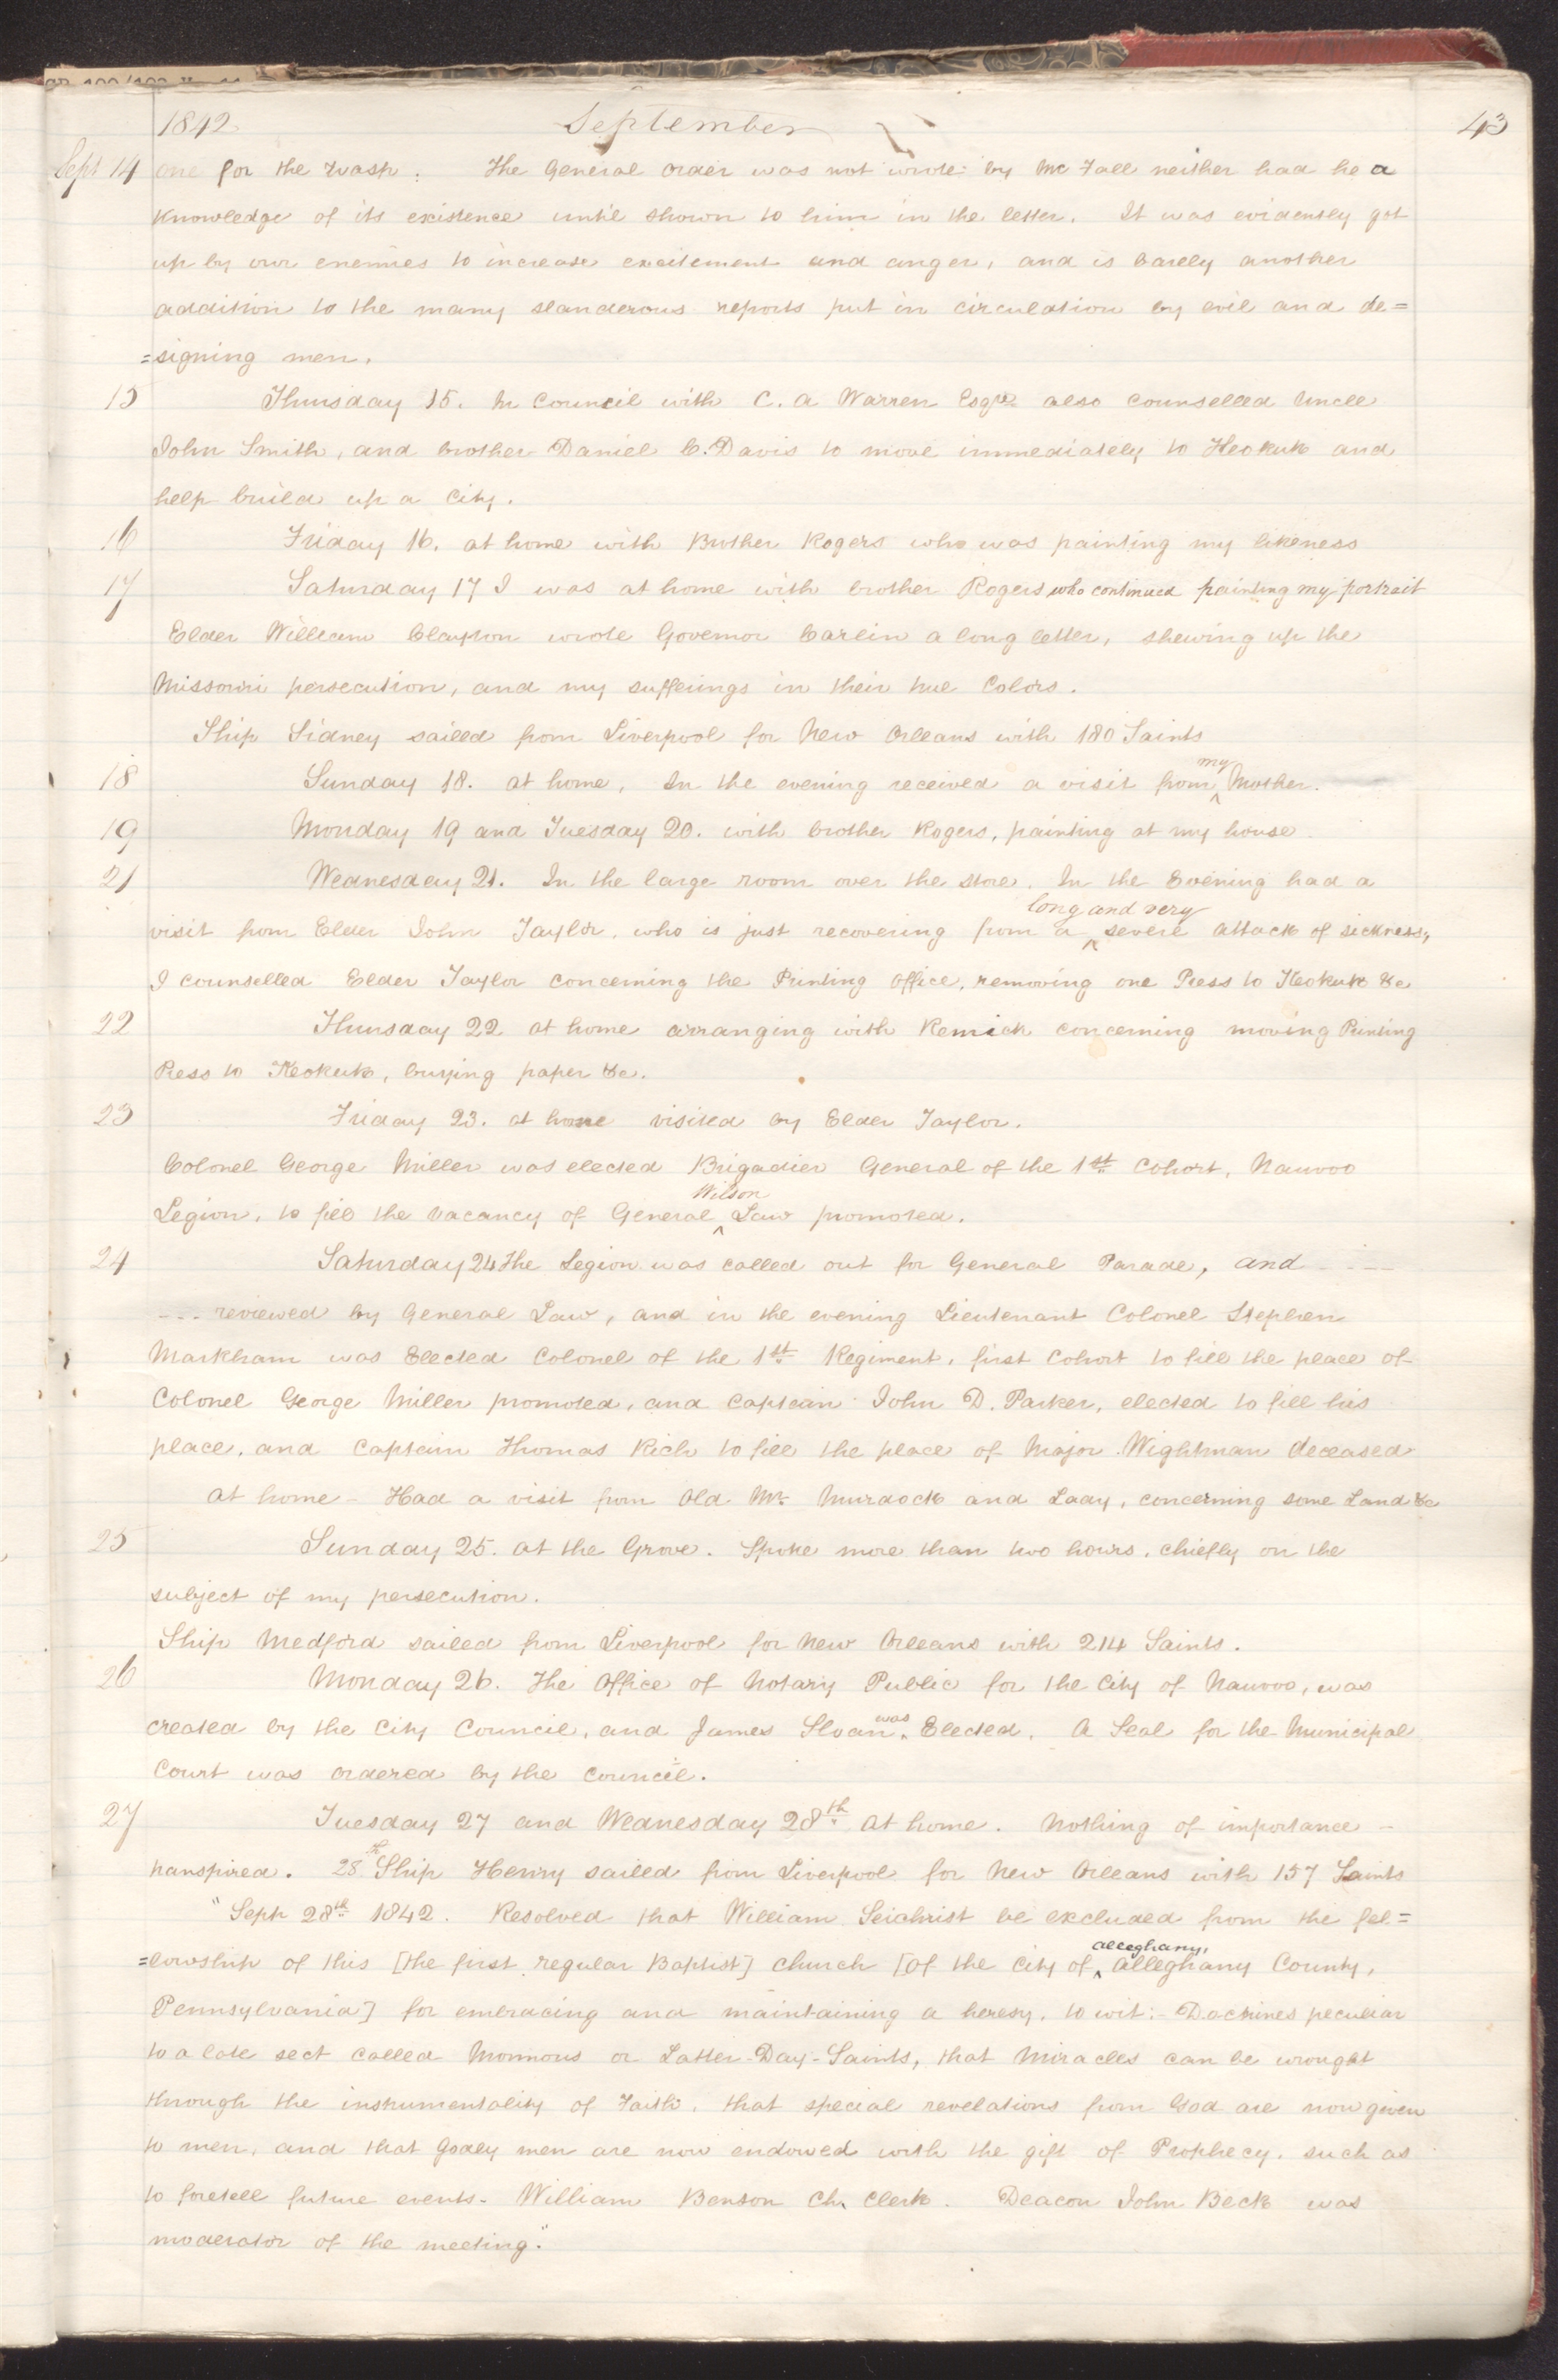 1842 September 43
Sept 14 one for the wash: The General Order was not wrote by Mc Fall neither had he a
knowledge of its existence until shown to him in the letter. It was evidently got
up by our enemies to increase excitement and anger, and is barely another
addition to the many slanderous reports put in circulation by evil and de=
=signing men.
15 Thursday 15. In Council with C. A Warren Esqre also counselled Uncle
John Smith, and brother Daniel C. Davis to move immediately to Keokuk and
help build up a City.
16 Friday 16. at home with Brother Rogers who was painting my likeness
17 Saturday 17 I was at home with brother Rogers who continued painting my portrait
Elder William Clayton wrote Governor Carlin a long letter, shewing up the
Missouri persecution, and my sufferings in their true Colors.
Ship Sidney sailed from Liverpool for New Orleans with 180 Saints
my
18 Sunday 18. at home, In the evening received a visit from ^ Mother.
19 Monday 19 and Tuesday 20. with brother Rogers, painting at my house.
21 Wednesday 21. In the large room over the store. In the Evening had a
long and very
visit from Elder John Taylor, who is just recovering from a ^ severe attack of sickness,
I counselled Elder Taylor concerning the Printing office, removing one Press to Keokuk &c
22 Thursday 22 at home arranging with Remick concerning moving Printing
Press to Keokuk, buying paper &c.
23 Friday 23. at home visited by Elder Taylor.
Colonel George Miller was elected Brigadier General of the 1st Cohort, Nauvoo
Wilson
Legion, to fill the vacancy of General ^ Law promoted.
24 Saturday 24 The Legion was called out for General Parade, and - - - -
- - - reviewed by General Law, and in the evening Lieutenant Colonel Stephen
Markham was Elected Colonel of the 1st Regiment, first Cohort to fill the place of
Colonel George Miller promoted, and Captain John D. Parker, elected to fill his
place, and Captain Thomas Rich to fill the place of Major Wightman deceased
at home - Had a visit from Old Mr. Murdock and Lady, concerning some Land &c
25 Sunday 25. at the Grove. Spoke more than two hours, chiefly on the
subject of my persecution.
Ship Medford sailed from Liverpool for New Orleans with 214 Saints.
26 Monday 26. The Office of Notary Public for the City of Nauvoo, was
was
created by the City Council, and James Sloan ^ Elected. A Seal for the Municipal
Court was ordered by the Council.
27 Tuesday 27 and Wednesday 28th at home. Nothing of importance -
transpired. 28th Ship Henry sailed from Liverpool for New Orleans with 157 Saints
"Sept 28th 1842. Resolved that William Seichrist be excluded from the fel=
alleghany,
=lowship of this [the first regular Baptist] church [of the City of ^ Alleghany County,
Pennsylvania] for embracing and maintaining a heresy, to wit:- Doctrines peculiar
to a late sect called Mormons or Latter-Day-Saints, that Miracles can be wrought
through the instrumentality of Faith, that special revelations from God are now given
to men, and that godly men are now endowed with the gift of Prophecy, such as
to foretell future events. William Benson Ch. Clerk. Deacon John Beck was
moderator of the meeting."